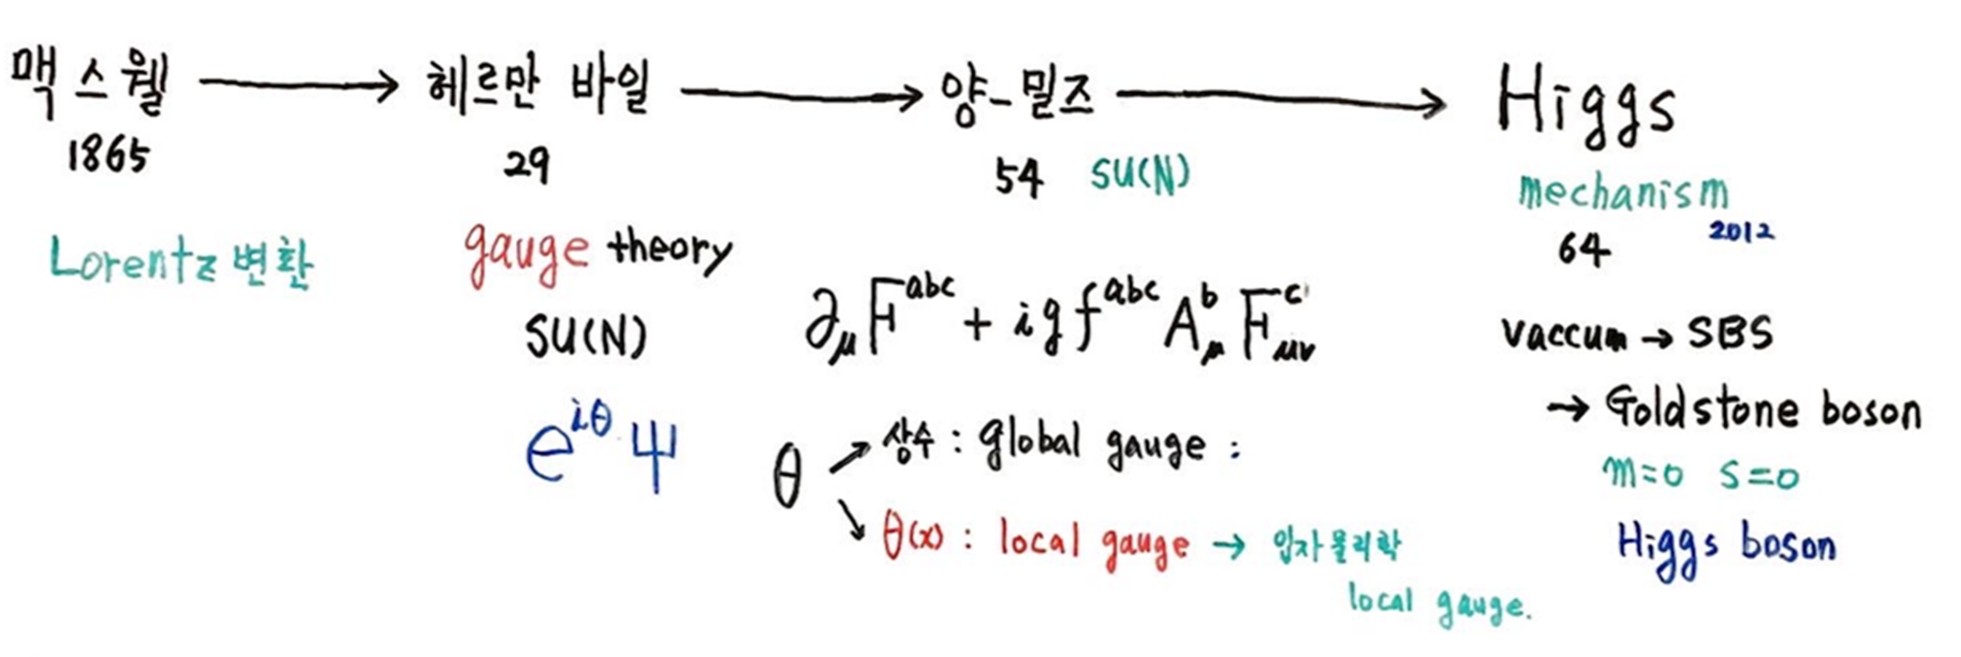 맥스웰 → 헤르만 바일 → 양-밀즈 → Higgs
1865
29
54 SU(N)
mechanism
64 2012
Lorentz 변환
gauge theory
SU(N)
e^{iθ} ψ
∂_μ F^{abc} + i g f^{abc} A^b_μ F^c_{μν}
θ ↗ 상수 : global gauge :
↘ θ(x) : local gauge → 입자물리학
local gauge.
vaccum → SBS
→ Goldstone boson
m=0 s=0
Higgs boson